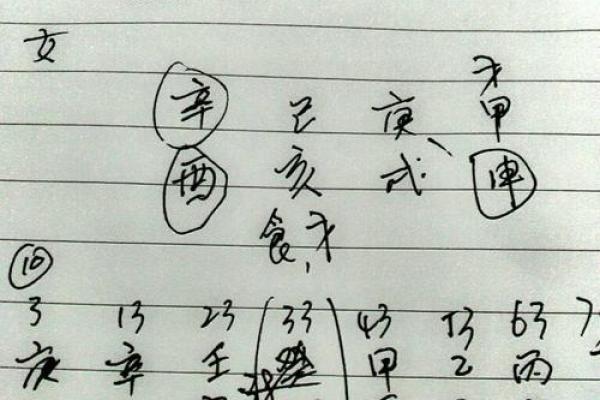 女
才
辛 己 庚 甲
酉 亥 戌 申
食才
10
3 13 23 33 43 53 63 7
庚 辛 壬 癸 甲 乙 丙